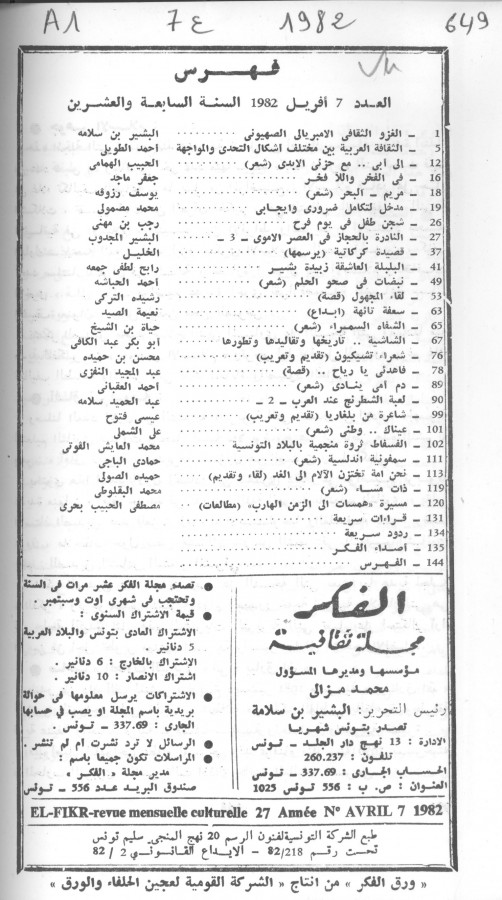 A1 7ع 1982 649
فهرس
العدد 7 أفريل 1982 السنة السابعة والعشرين
1 - الغزو الثقافى الامبريالى الصهيونى .......... البشير بن سلامه
5 - الثقافة العربية بين مختلف اشكال التحدى والمواجهة احمد الطويلى
12 - الى أبى .. مع حزنى الابدى (شعر) .......... الحبيب الهمامى
16 - فى الفخر واللا فخر .......... جعفر ماجد
18 - مريم - البحر (شعر) .......... يوسف رزوقه
19 - مدخل لتكامل ضرورى وايجابى .......... محمد مصمولى
26 - شجن طفل فى يوم فرح .......... رجب بن مهنى
27 - النادرة بالحجاز فى العصر الاموى - 3 - .......... البشير المجدوب
37 - قصيدة كركانية (يرسمها) .......... الخليل
41 - البلبلة العاشقة زبيدة بشير .......... رابح لطفى جمعه
49 - نبضات فى صحو الحلم (شعر) .......... احمد الحباشه
53 - لقاء المجهول (قصة) .......... رشيده التركى
63 - سعفة تائهة (ابداع) .......... نعيمة الصيد
65 - الشفاه السمراء (شعر) .......... حياة بن الشيخ
67 - الشاشية .. تاريخها وتقاليدها وتطورها .......... ابو بكر عبد الكافى
76 - شعراء تشيكيون (تقديم وتعريب) .......... محسن بن حميده
78 - فاهدئى يا رياح .. (قصة) .......... عبد المجيد النفزى
89 - دم أمى ينادى (شعر) .......... احمد العقبانى
90 - لعبة الشطرنج عند العرب - 2 - .......... عبد الحميد سلامه
99 - شاعرة من بلغاريا (تقديم وتعريب) .......... عيسى فتوح
101 - عيناك .. وطنى (شعر) .......... على الشملى
102 - الفسفاط ثروة منجمية بالبلاد التونسية .......... محمد العايش القوتى
111 - سمفونية اندلسية (شعر) .......... حمادى الباجى
113 - نحن امة تختزن الآلام الى الغد (لقاء وتقديم) .......... حميده الصولى
119 - ذات مساء (شعر) .......... محمد البقلوطى
120 - مسيرة «همسات الى الزمن الهارب» (مطالعات) مصطفى الحبيب بحرى
131 - قراءات سريعة ..........
134 - ردود سريعة ..........
135 - أصداء الفكر ..........
144 - الفهرس ..........
الفكر
مجلة ثقافية
مؤسسها ومديرها المسؤول
محمد مزالى
رئيس التحرير: البشير بن سلامة
تصدر بتونس شهريا
الادارة : 13 نهج دار الجلد - تونس
تلفون : 260.237
الحساب الجارى : 337.69 - تونس
العنوان : ص. ب : 556 تونس 1025
● تصدر مجلة الفكر عشر مرات فى السنة
وتحتجب فى شهرى اوت وسبتمبر .
● قيمة الاشتراك السنوى :
الاشتراك العادى بتونس والبلاد العربية
5 دنانير .
الاشتراك بالخارج : 6 دنانير .
اشتراك الانصار : 10 دنانير .
● الاشتراكات يرسل معلومها فى حوالة
بريدية باسم المجلة او يصب فى حسابها
الجارى : 337.69 - تونس .
● الرسائل لا ترد نشرت ام لم تنشر .
● المراسلات تكون جميعا باسم :
مدير مجلة « الفكر »
صندوق البريد عدد 556 - تونس
EL-FIKR-revue mensuelle culturelle 27 Année Nº AVRIL 7 1982
طبع الشركة التونسية لفنون الرسم 20 نهج المنجى سليم تونس
تحت رقم 82/218 - الايداع القانونى 2 / 82
« ورق الفكر » من انتاج « الشركة القومية لعجين الحلفاء والورق »